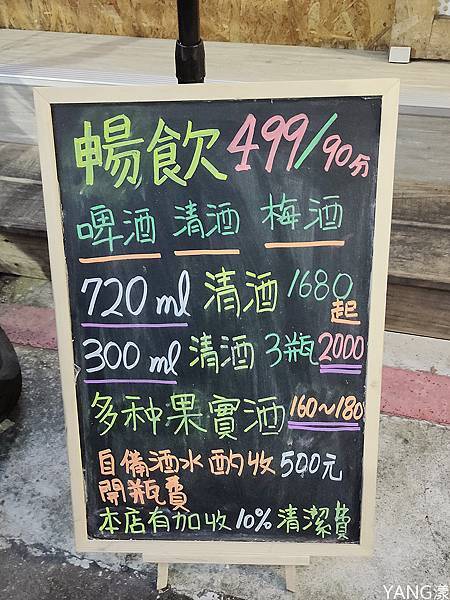 暢飲499/90分
啤酒 清酒 梅酒
720 ml 清酒 1680起
300 ml 清酒 3瓶2000
多种果實酒160~180
自備酒水酌收500元
開瓶費
本店有加收10%清潔費
YANG漾